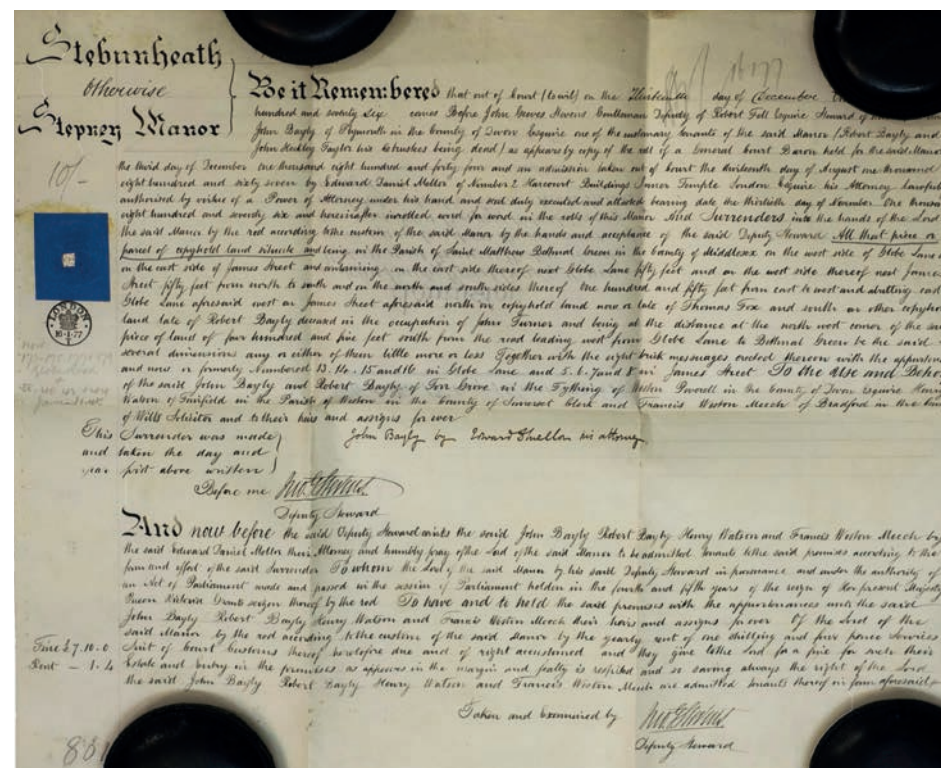 Stebunheath
otherwise
Stepney Manor
Be it Remembered that out of Court (to wit) on the Thirteenth day of December
hundred and seventy six comes Before John Stevens Gentleman Deputy of Robert Esquire Steward of
John Bayly of Plymouth in the County of Devon Esquire one of the customary tenants of the said Manor (Robert Bayly and
John Taylor his Cotrustees being dead) as appears by copy of the roll of a General Court Baron held for the said Manor
10/-
the third day of December one thousand eight hundred and forty four and an admission taken out of court the thirteenth day of August one thousand
eight hundred and sixty seven by Edward Daniel Mellor of Number 2 Harcourt Buildings Inner Temple London Esquire his Attorney lawfully
authorised by virtue of a Power of Attorney under his hand and seal duly executed and attested bearing date the thirtieth day of November One thousand
eight hundred and seventy six and hereinafter inrolled word for word in the rolls of this Manor And Surrenders into the hands of the Lord
the said Manor by the rod according to the custom of the said Manor by the hands and acceptance of the said Deputy Steward All that piece or
parcel of copyhold land situate and being in the Parish of Saint Matthew Bethnal Green in the County of Middlesex on the west side of Globe Lane
on the east side of James Street and containing on the east side thereof next Globe Lane fifty feet and on the west side thereof next James
Street fifty feet from north to south and on the north and south sides thereof One hundred and fifty feet from east to west and abutting east
Globe Lane aforesaid west on James Street aforesaid north on copyhold land now or late of Thomas Fox and south on other copyhold
land late of Robert Bayly deceased in the occupation of John Turner and being at the distance at the north west corner of the said
piece of land of four hundred and five feet south from the road leading west from Globe Lane to Bethnal Green be the said
several dimensions any or either of them little more or less Together with the eight brick messuages erected thereon with the appurtenances
and now or formerly Numbered 13. 14. 15 and 16 in Globe Lane and 5. 6. 7 and 8 in James Street To the Use and Behoof
of the said John Bayly and Robert Bayly of Torr Grove in the Tything of Weston Peverell in the County of Devon Esquire Henry
Watson of Fairfield in the Parish of Weston in the County of Somerset Clerk and Francis Weston Meech of Bradford in the County
of Wilts Solicitor and to their heirs and assigns for ever
LONDON
16·1·77
This Surrender was made
and taken the day and
year first above written
John Bayly by Edward D Mellor his attorney
Before me Jno. G Stevens
Deputy Steward
And now before the said Deputy Steward come the said John Bayly Robert Bayly Henry Watson and Francis Weston Meech by
the said Edward Daniel Mellor their Attorney and humbly pray of the Lord of the said Manor to be admitted tenants to the said premises according to the
form and effect of the said Surrender To whom the Lord of the said Manor by his said Deputy Steward in pursuance and under the authority of
an Act of Parliament made and passed in the session of Parliament holden in the fourth and fifth years of the reign of Her present Majesty
Queen Victoria Grants seizin thereof by the rod To have and to hold the said premises with the appurtenances unto the said
John Bayly Robert Bayly Henry Watson and Francis Weston Meech their heirs and assigns for ever Of the Lord of the
said Manor by the rod according to the custom of the said Manor by the yearly rent of one shilling and four pence Services
Fine £7.10.0
Suit of Court Customs thereof heretofore due and of right accustomed and they give to the Lord for a fine for such their
Rent – 1.4
Estate and entry in the premises as appears in the margin and fealty is respited and so saving always the right of the Lord
the said John Bayly Robert Bayly Henry Watson and Francis Weston Meech are admitted tenants thereof in form aforesaid
Taken and Examined by Jno. G Stevens
Deputy Steward